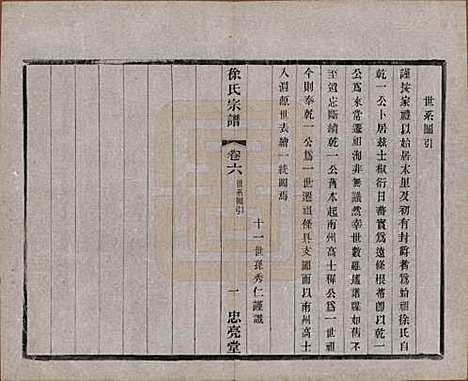 世系圖引
謹按家禮以始居本里及初有封爵者爲始祖徐氏自
乾一公卜居兹土椒衍日蕃實爲遠條根蒂卽以
公爲來常遷祖洵非無議然幸世數雖遙譜牒如舊不
至遺忘斷續乾一公舊本起南州高士稱一世祖
今則奉乾一公爲一世遷祖條具支圖而以南州高士
入淵源世表繪一統圖焉
十一世孫秀仁謹識
徐氏宗譜
卷六 世系圖引
一
忠亮堂